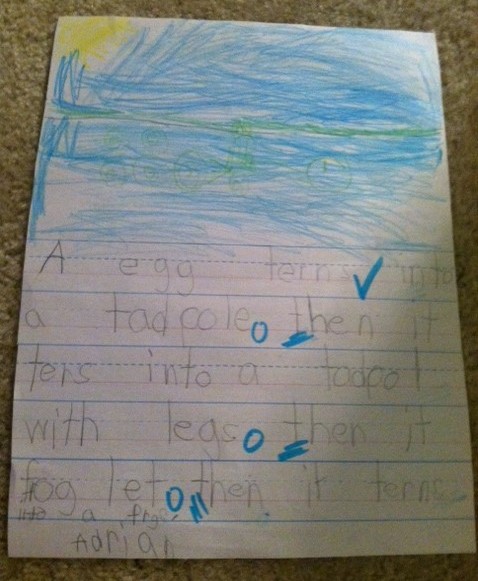 A egg terns into
a tadpole then it
ters into a tadpol
with legs then it
fog let then it terns
into a frog
Adrian